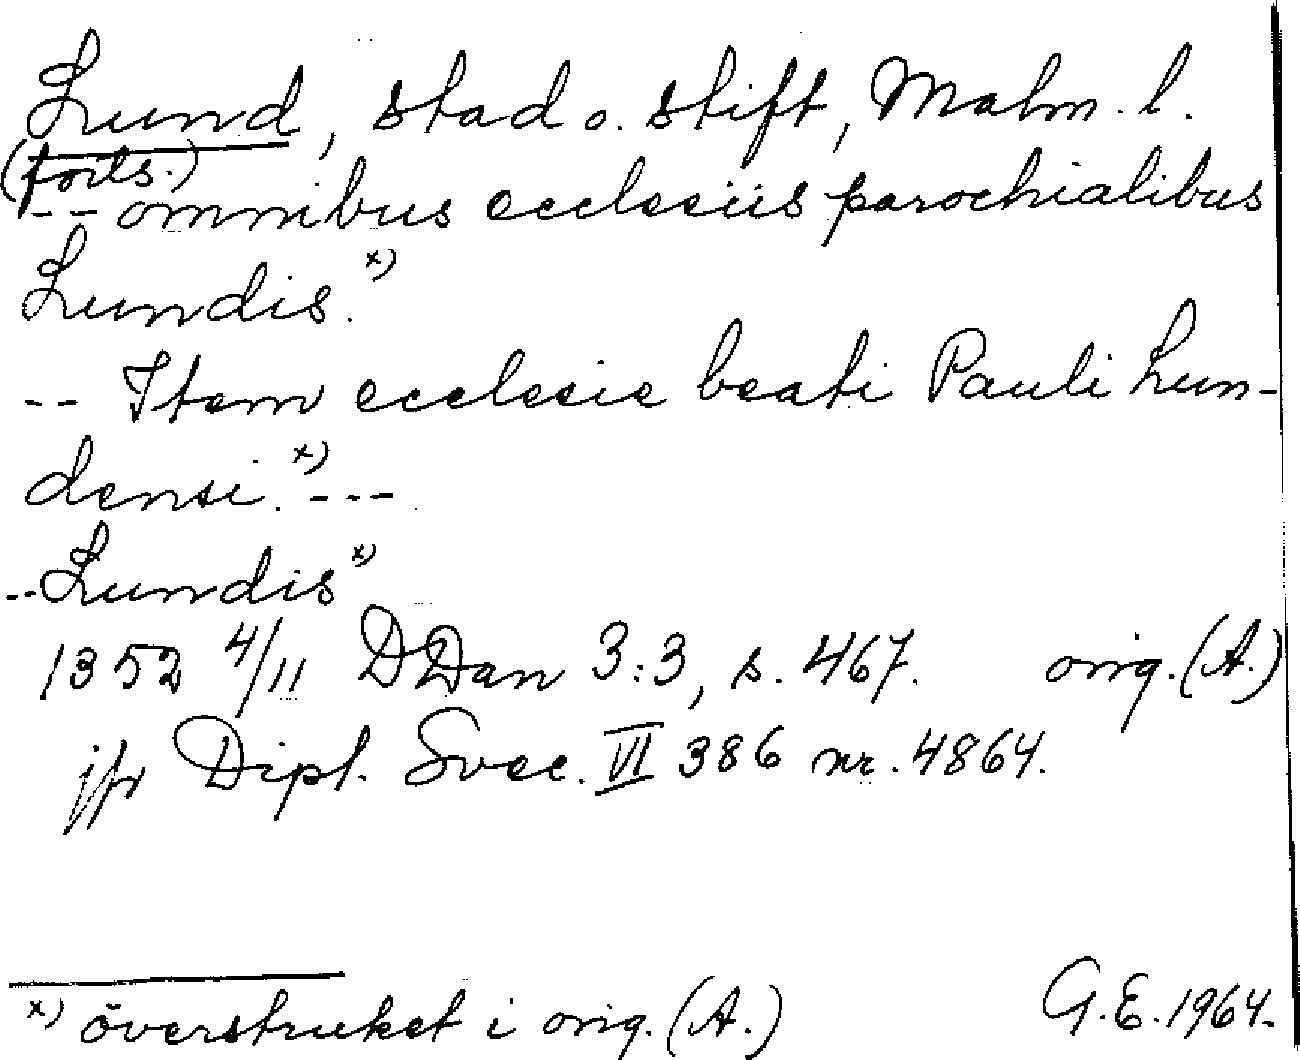 Lund, stad o. stift, Malm. l.
(forts.)
-- omnibus ecclesiis parochialibus
Lundis.x)
-- Item ecclesie beati Pauli Lun-
densi.x) ---
-- Lundis x)
1352 4/11 DDan 3:3, s. 467. orig. (A.)
jfr Dipl. Svec. VI 386 nr. 4864.
x) överstruket i orig. (A.) G.E. 1964.